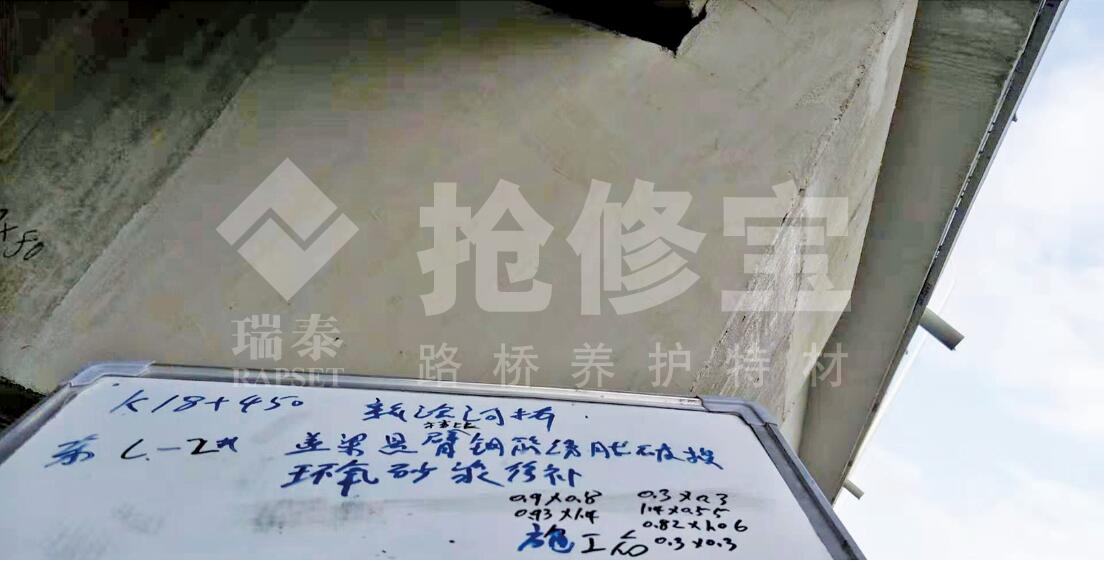 抢修宝
瑞泰
RAPSET
路桥养护特材
K18+450 新
L-2# 盖梁悬臂钢筋锈胀破损
环氧砂浆修补
0.9×0.8 0.3×0.3
0.93×1.4 1.4×0.55
0.82×1.06
施工后 0.3×0.3